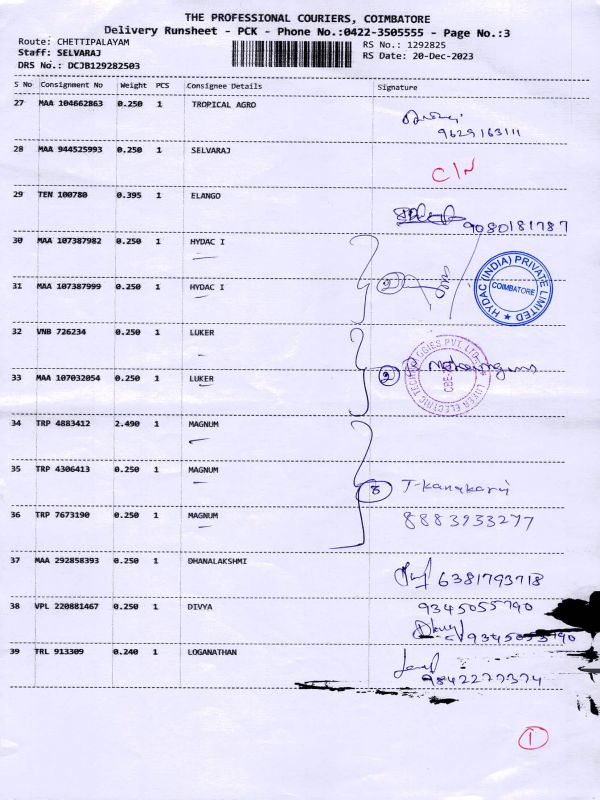 THE PROFESSIONAL COURIERS, COIMBATORE
Delivery Runsheet - PCK - Phone No.:0422-3505555 - Page No.:3
Route: CHETTIPALAYAM RS No.: 1292825
Staff: SELVARAJ RS Date: 20-Dec-2023
DRS No.: DCJB129282503
S No Consignment No Weight PCS Consignee Details Signature
27 MAA 104662863 0.250 1 TROPICAL AGRO
9629163111
28 MAA 944525993 0.250 1 SELVARAJ
C/N
29 TEN 100780 0.395 1 ELANGO
9080181787
30 MAA 107387982 0.250 1 HYDAC I
31 MAA 107387999 0.250 1 HYDAC I
2
HYDAC (INDIA) PRIVATE LIMITED ★ COIMBATORE
32 VNB 726234 0.250 1 LUKER
33 MAA 107032054 0.250 1 LUKER
2
LUKER ELECTRIC TECHNOLOGIES PVT. LTD.
34 TRP 4883412 2.490 1 MAGNUM
35 TRP 4306413 0.250 1 MAGNUM
3 T-kanakaraj
36 TRP 7673190 0.250 1 MAGNUM
8883933277
37 MAA 292858393 0.250 1 DHANALAKSHMI
6381793718
38 VPL 220881467 0.250 1 DIVYA
9345055790
9345055790
39 TRL 913309 0.240 1 LOGANATHAN
9842277374
1